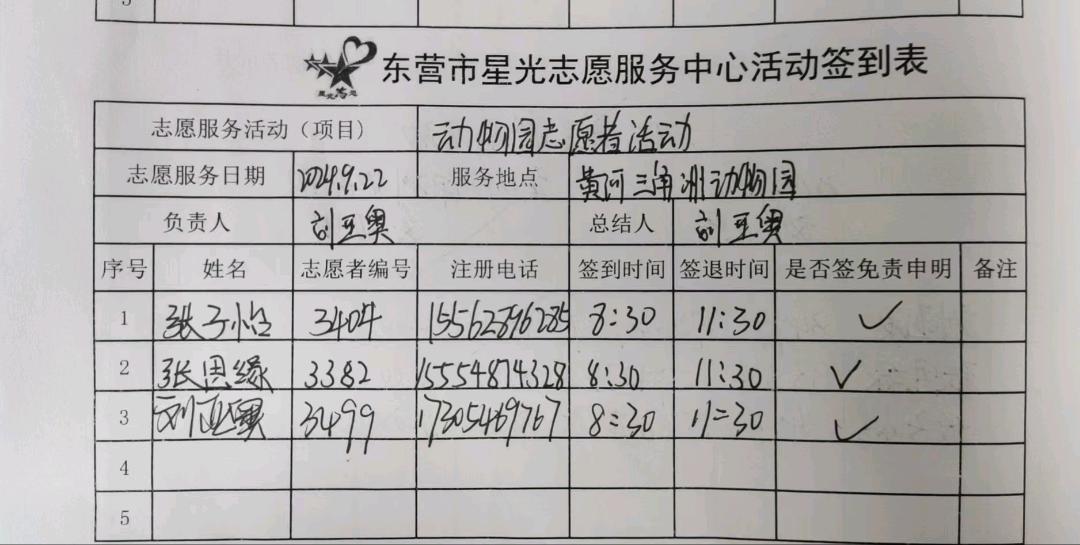 东营市星光志愿服务中心活动签到表
志愿服务活动（项目） 动物园志愿者活动
志愿服务日期 2024.9.22 服务地点 黄河三角洲动物园
负责人 刘亚奥 总结人 刘亚奥
序号 姓名 志愿者编号 注册电话 签到时间 签退时间 是否签免责申明 备注
1 张子怡 3404 15562896285 8:30 11:30 ✓
2 张恩缘 3382 15554874328 8:30 11:30 ✓
3 刘亚奥 3499 17305469767 8:30 11:30 ✓
4
5